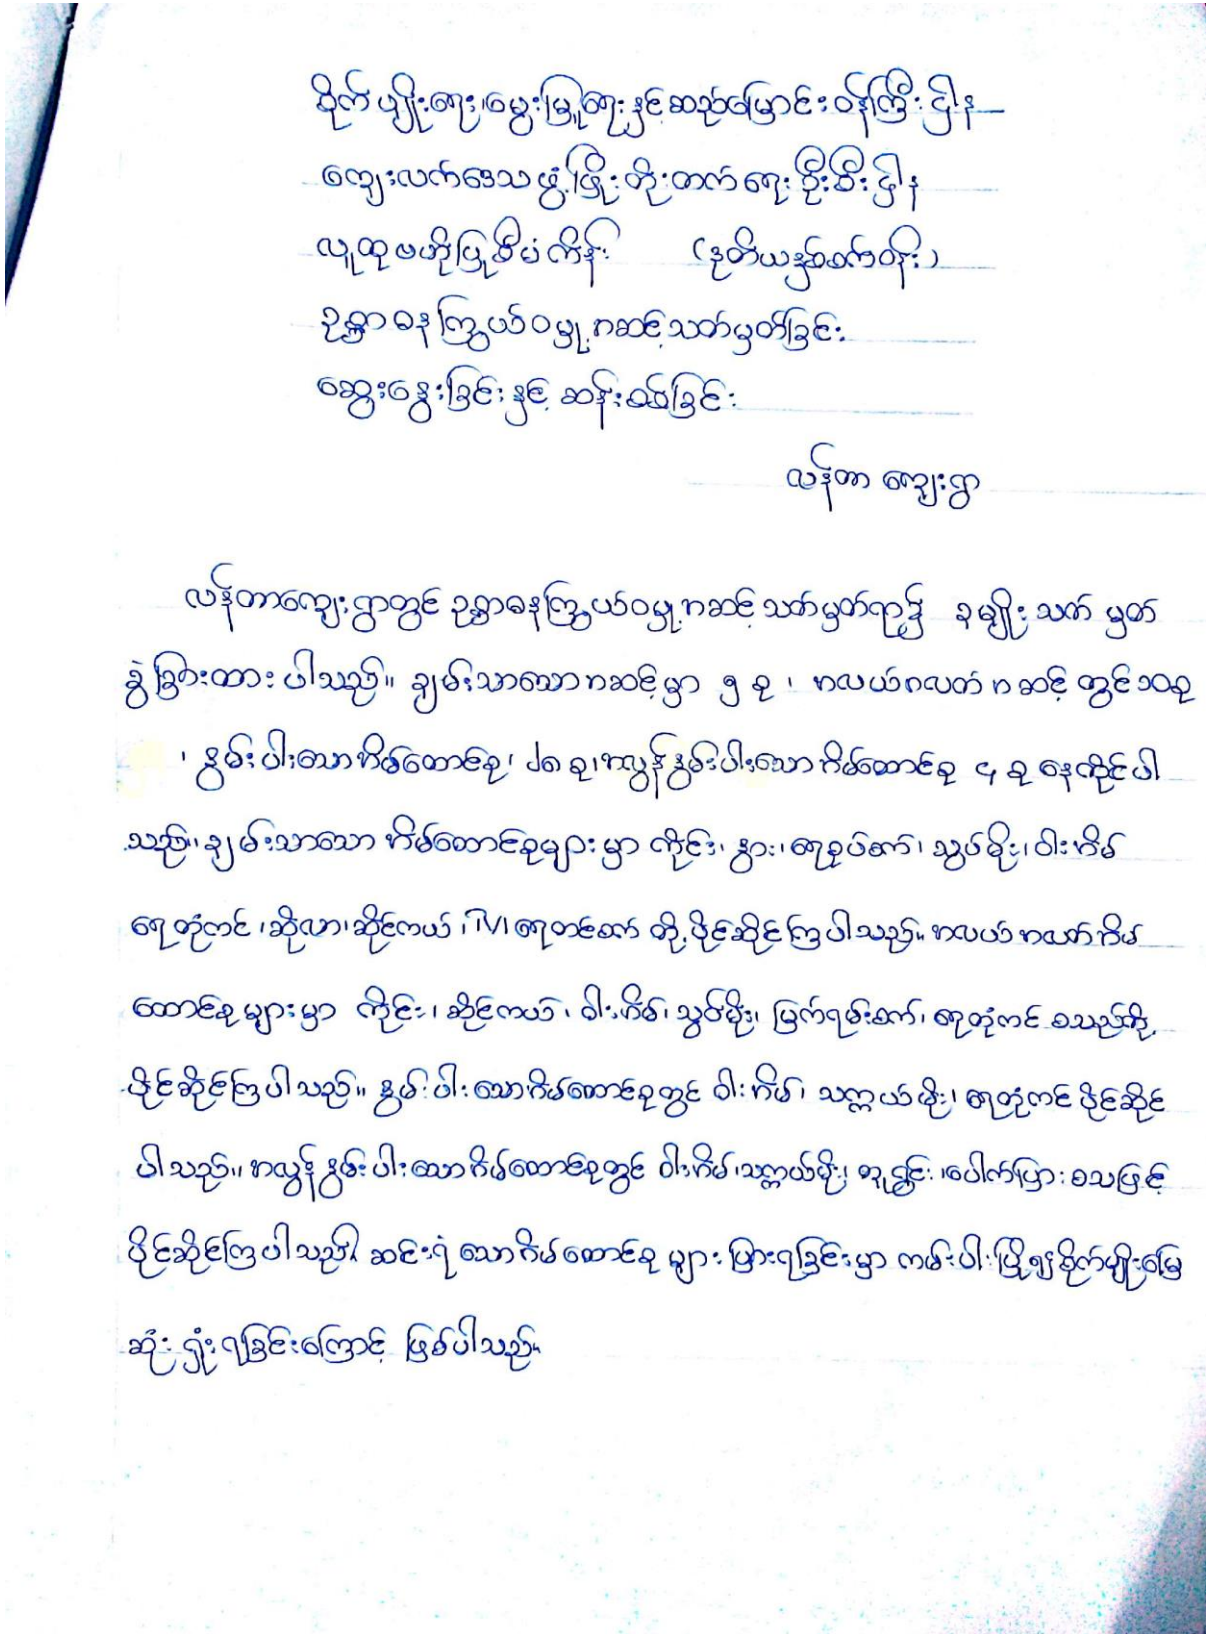 စိုက်ပျိုးရေး၊မွေးမြူရေးနှင့်ဆည်မြောင်းဝန်ကြီးဌာန
ကျေးလက်ဒေသဖွံ့ဖြိုးတိုးတက်ရေးဦးစီးဌာန
လူထုဗဟိုပြုစီမံကိန်း (ဒုတိယနှစ်စက်ဝန်း)
ဥစ္စာဓနကြွယ်ဝမှု့အဆင့်သတ်မှတ်ခြင်း
ဆွေးနွေးခြင်းနှင့် ဆန်းစစ်ခြင်း
လန်တာ ကျေးရွာ
လန်တာကျေးရွာတွင် ဥစ္စာဓနကြွယ်ဝမှု့အဆင့် သတ်မှတ်ရာ၌ ၃မျိုး သတ် မှတ်
ခွဲခြားထားပါသည်။ ချမ်းသာသောအဆင့်မှာ ၅ ခု ၊ အလယ်အလတ် အဆင့် တွင်၁၀ခု
၊ နွမ်းပါးသောအိမ်ထောင်စု၊ ၂၈ စု၊အလွန်နွမ်းပါးသောအိမ်ထောင်စု ၄ စု နေထိုင်ပါ
သည်။ ချမ်းသာသော အိမ်ထောင်စုများမှာ ကိုင်း၊ နွား၊ ရေစုပ်စက်၊ သွပ်မိုး၊ ဝါးအိမ်
ရေတုံကင် ၊ဆိုလာ၊ဆိုင်ကယ် ၊TV၊ရေတင်စက် တို့ပိုင်ဆိုင်ကြပါသည်။ အလယ် အလတ်အိမ်
ထောင်စုများမှာ ကိုင်း၊ ဆိုင်ကယ်၊ ဝါးအိမ်၊ သွပ်မိုး၊ မြက်ရမ်းစက်၊ ရေတုံကင် စသည်တို့
ပိုင်ဆိုင်ကြပါသည်။ နွမ်းပါးသောအိမ်ထောင်စုတွင် ဝါးအိမ်၊ သက္ကယ်မိုး၊ ရေတုံကင် ပိုင်ဆိုင်
ပါသည်။ အလွန်နွမ်းပါးသောအိမ်ထောင်စုတွင် ဝါးအိမ်၊သက္ကယ်မိုး၊ ၊ပေါက်ပြား စသဖြင့်
ပိုင်ဆိုင်ကြပါသည်။ ဆင်းရဲသောအိမ်ထောင်စု များ ပြားရခြင်းမှာ ကမ်းပါးပြို၍စိုက်ပျိုးမြေ
ဆုံးရှုံးရခြင်းကြောင့် ဖြစ်ပါသည်။